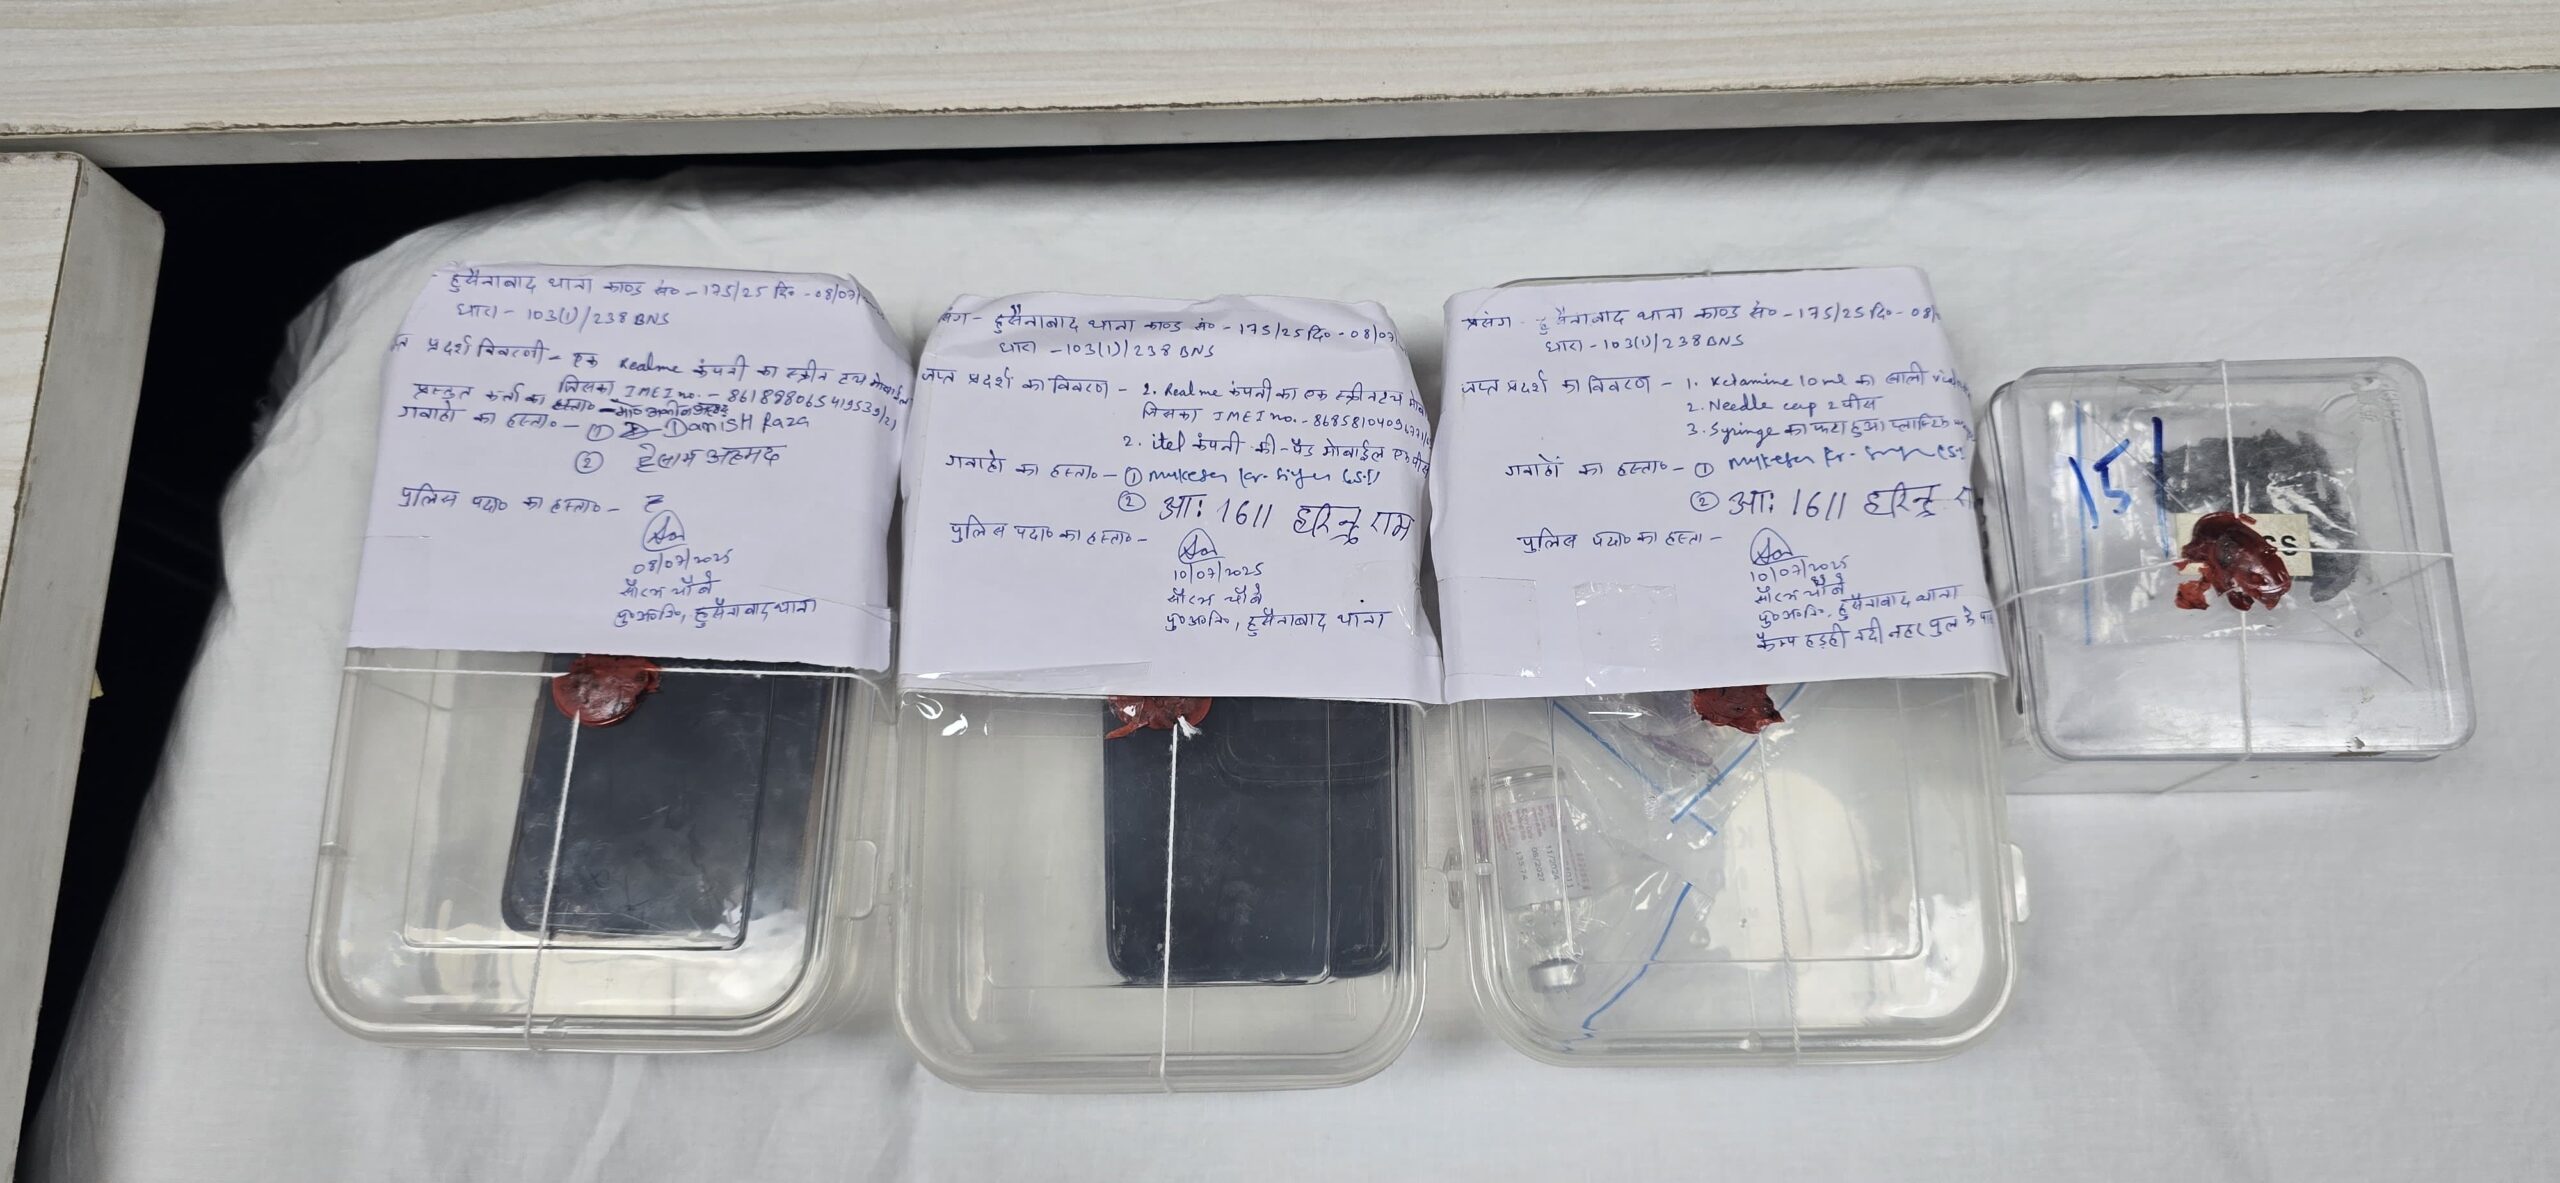 हुसैनाबाद थाना काण्ड सं० - 175/25 दि० - 08/07/
धारा - 103(1)/238 BNS
प्रदर्श विवरणी - एक Realme कंपनी का स्क्रीन टच मोबाईल
जिसका IMEI no. -
प्रस्तुत कर्ता का हस्ता०
गवाहों का हस्ता० - ① Danish Raza
②
पुलिस पदा० का हस्ता० -
08/07/2025
सौरभ चौबे
पु०अ०नि०, हुसैनाबाद थाना
हुसैनाबाद थाना काण्ड सं० - 175/25 दि० - 08/07/
धारा - 103(1)/238 BNS
जप्त प्रदर्श का विवरण - 2. Realme कंपनी का एक स्क्रीन टच
जिसका IMEI no. -
2. itel कंपनी की-पैड मोबाईल एक
गवाहों का हस्ता० - ① Mukesh Kr. (S.I)
② आ: 1611 हरिन्द्र राम
पुलिस पदा० का हस्ता० -
10/07/2025
सौरभ चौबे
पु०अ०नि०, हुसैनाबाद थाना
प्रसंग - हुसैनाबाद थाना काण्ड सं० - 175/25 दि० - 08/
धारा - 103(1)/238 BNS
जप्त प्रदर्श का विवरण - 1. Ketamine 10 ml का खाली vial
2. Needle cap 2 पीस
3. Syringe का फटा हुआ प्लास्टिक
गवाहों का हस्ता० - ① Mukesh Kr.
② आ: 1611 हरिन्द्र
पुलिस पदा० का हस्ता -
10/07/2025
सौरभ चौबे
पु०अ०नि०, हुसैनाबाद थाना
कैम्प हड़ही नदी नहर पुल के पास
11/2024
S